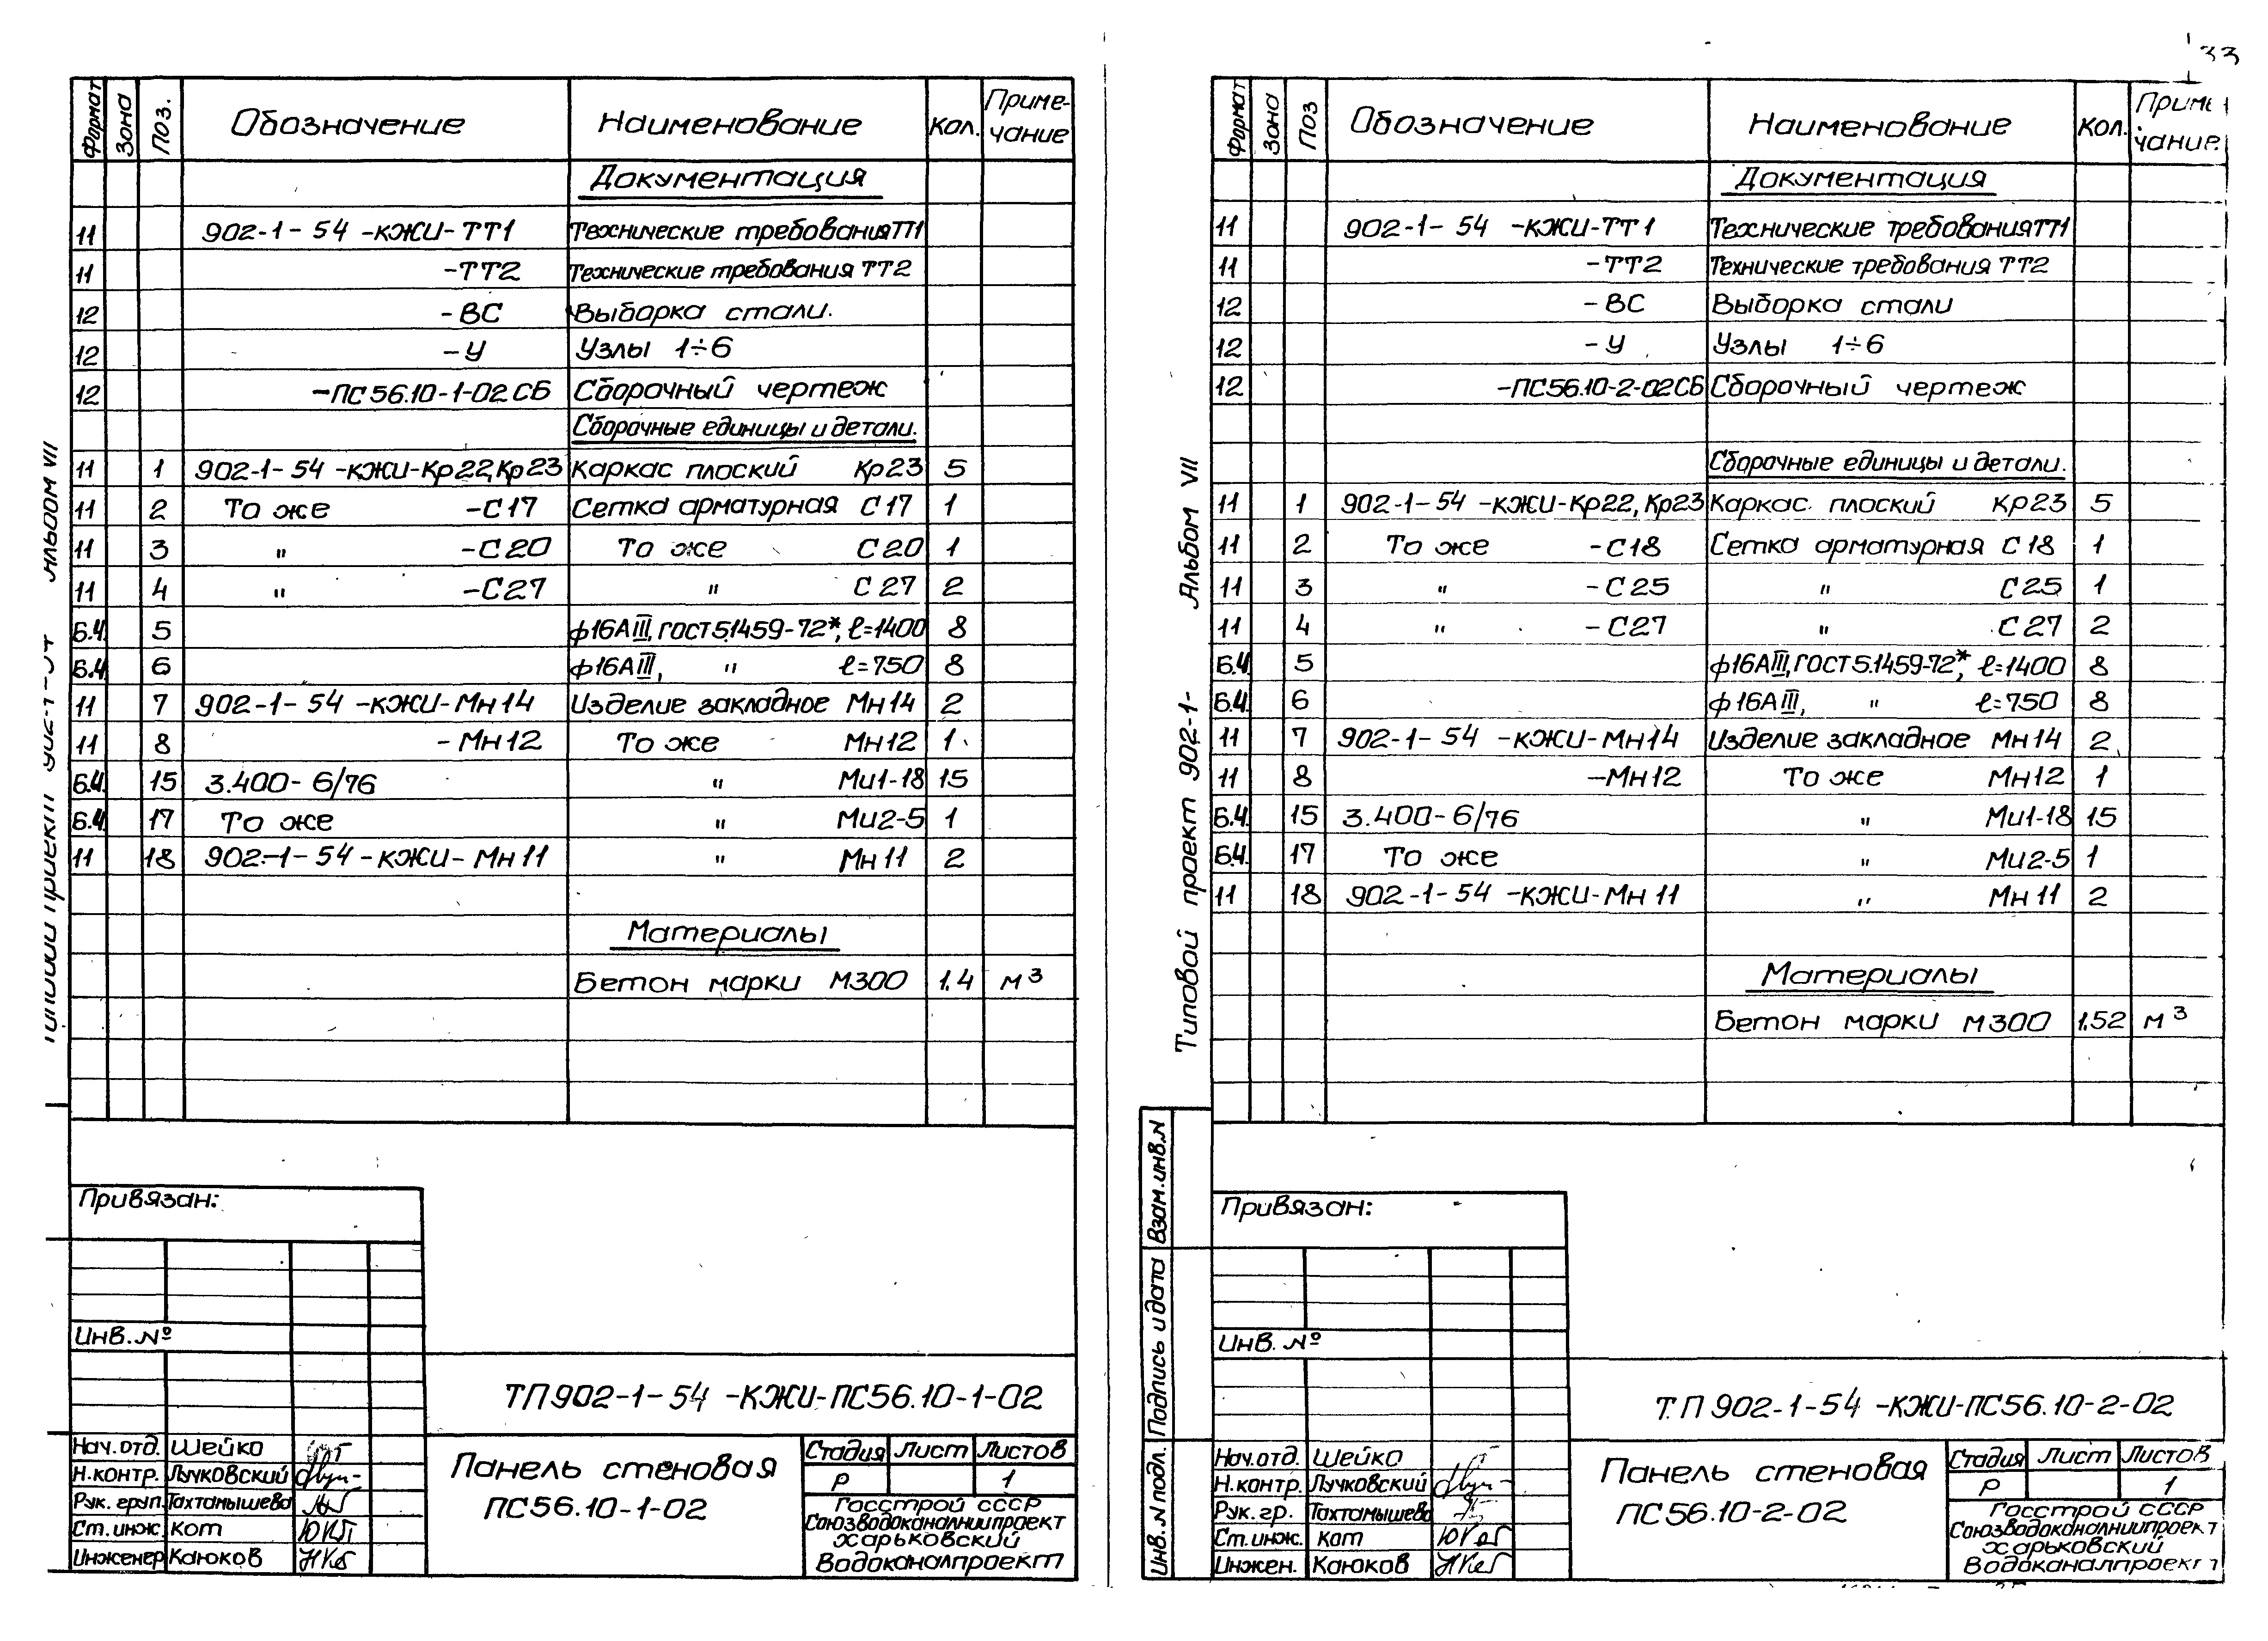 33
Формат Зона Поз. Обозначение Наименование Кол. Приме-
чание
Документация
11 902-1-54 -КЖИ-ТТ1 Технические требования ТТ1
11 -ТТ2 Технические требования ТТ2
12 -ВС Выборка стали.
12 -У Узлы 1÷6
12 -ПС56.10-1-02СБ Сборочный чертеж
Сборочные единицы и детали.
11 1 902-1-54 -КЖИ-Кр22,Кр23 Каркас плоский Кр23 5
11 2 То же -С17 Сетка арматурная С17 1
11 3 " -С20 То же С20 1
11 4 " -С27 " С27 2
Б.Ч. 5 ф16АIII, ГОСТ5.1459-72*, ℓ=1400 8
Б.Ч. 6 ф16АIII, " ℓ=750 8
11 7 902-1-54 -КЖИ-Мн14 Изделие закладное Мн14 2
11 8 -Мн12 То же Мн12 1
Б.Ч. 15 3.400-6/76 " Ми1-18 15
Б.Ч. 17 То же " Ми2-5 1
11 18 902-1-54-КЖИ-Мн11 " Мн11 2
Материалы
Бетон марки М300 1.4 м³
Альбом VII
Привязан:
Инв.№
ТП902-1-54 -КЖИ-ПС56.10-1-02
Нач.отд. Шейко
Н.контр. Лучковский
Рук.груп. Тахтамышева
Ст.инж. Кот
Инженер Каюков
Панель стеновая
ПС56.10-1-02
Стадия Лист Листов
Р 1
Госстрой СССР
Союзводоканалниипроект
Харьковский
Водоканалпроект
Формат Зона Поз Обозначение Наименование Кол. Приме
чание.
Документация
11 902-1-54 -КЖИ-ТТ1 Технические требования ТТ1
11 -ТТ2 Технические требования ТТ2
12 -ВС Выборка стали
12 -У Узлы 1÷6
12 -ПС56.10-2-02СБ Сборочный чертеж
Сборочные единицы и детали.
11 1 902-1-54 -КЖИ-Кр22,Кр23 Каркас плоский Кр23 5
11 2 То же -С18 Сетка арматурная С18 1
11 3 " -С25 " С25 1
11 4 " -С27 " С27 2
Б.Ч. 5 ф16АIII, ГОСТ5.1459-72*, ℓ=1400 8
Б.Ч. 6 ф16АIII, " ℓ=750 8
11 7 902-1-54 -КЖИ-Мн14 Изделие закладное Мн14 2
11 8 -Мн12 То же Мн12 1
Б.Ч. 15 3.400-6/76 " Ми1-18 15
Б.Ч. 17 То же " Ми2-5 1
11 18 902-1-54 -КЖИ-Мн11 " Мн11 2
Материалы
Бетон марки М300 1.52 м³
Типовой проект 902-1- Альбом VII
Инв.N подл. Подпись и дата Взам.инв.N
Привязан:
Инв.№
Т.П 902-1-54 -КЖИ-ПС56.10-2-02
Нач.отд. Шейко
Н.контр. Лучковский
Рук.гр. Тахтамышева
Ст.инж. Кот
Инжен. Каюков
Панель стеновая
ПС56.10-2-02
Стадия Лист Листов
Р 1
Госстрой СССР
Союзводоканалниипроект
Харьковский
Водоканалпроект